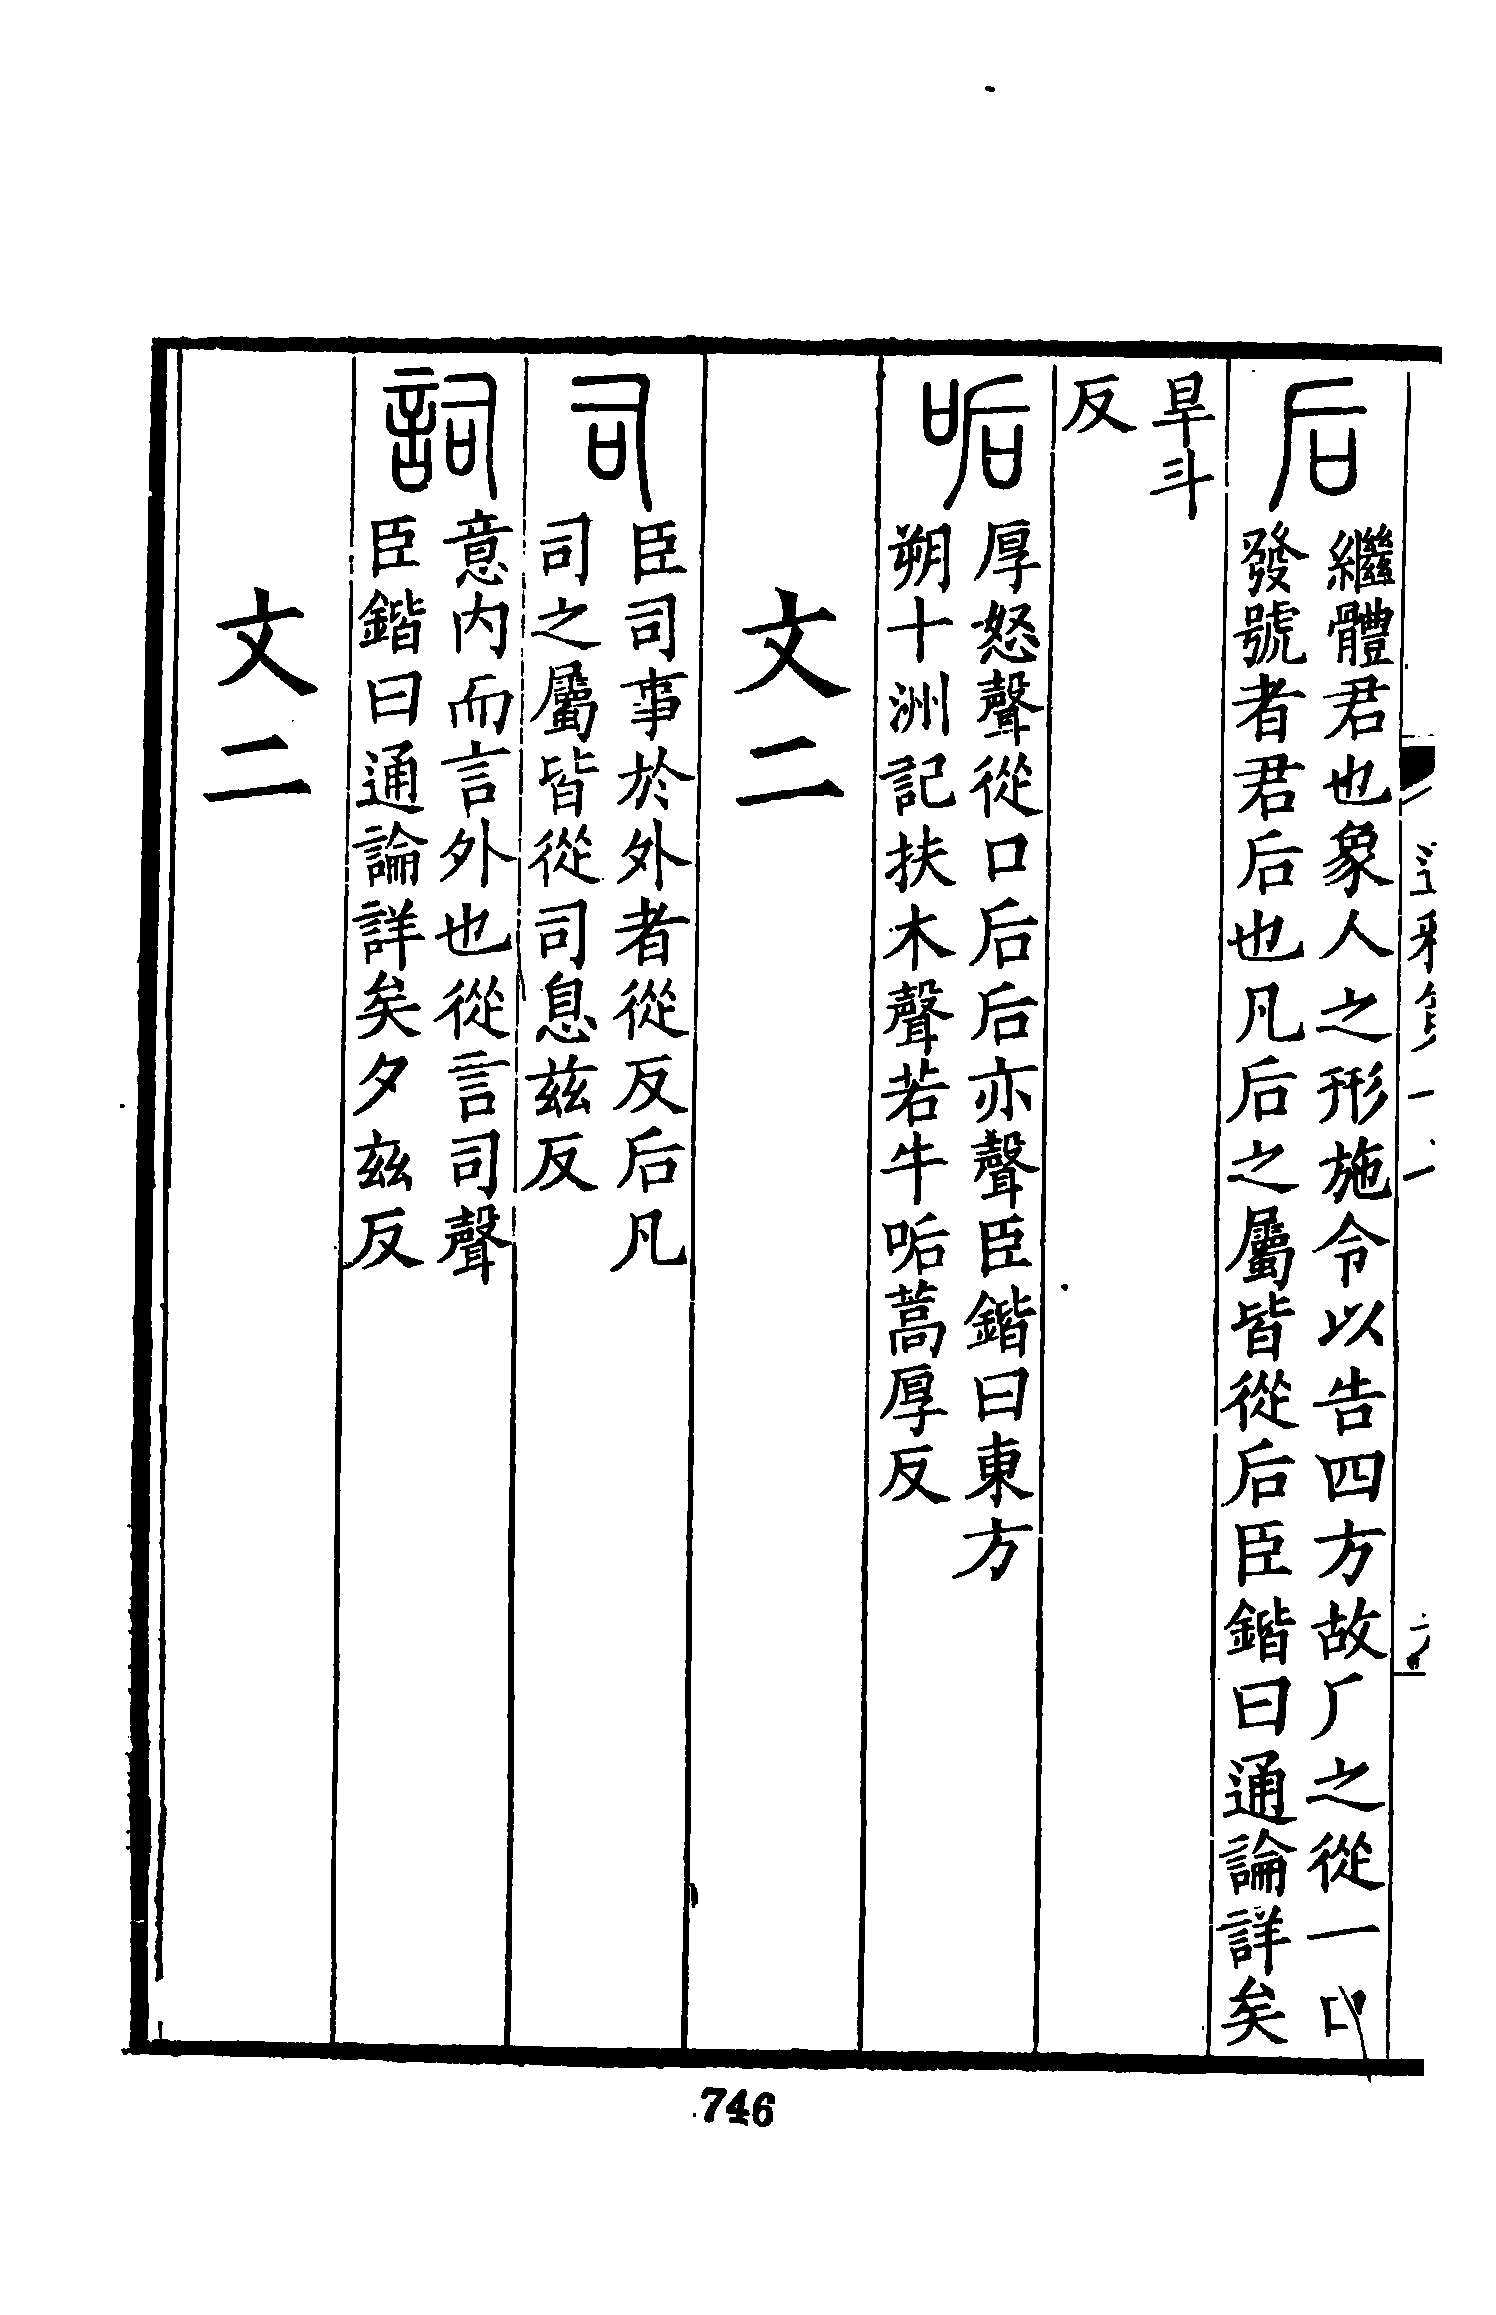 后
繼體君也象人之形施令以告四方故厂之從一口
發號者君后也凡后之屬皆從后臣鍇曰通論詳矣
旱斗
反
听
厚怒聲從口后后亦聲臣鍇曰東方
朔十洲記扶木聲若牛呴蒿厚反
文二
司
臣司事於外者從反后凡
司之屬皆從司息茲反
詞
意内而言外也從言司聲
臣鍇曰通論詳矣夕茲反
文二
746